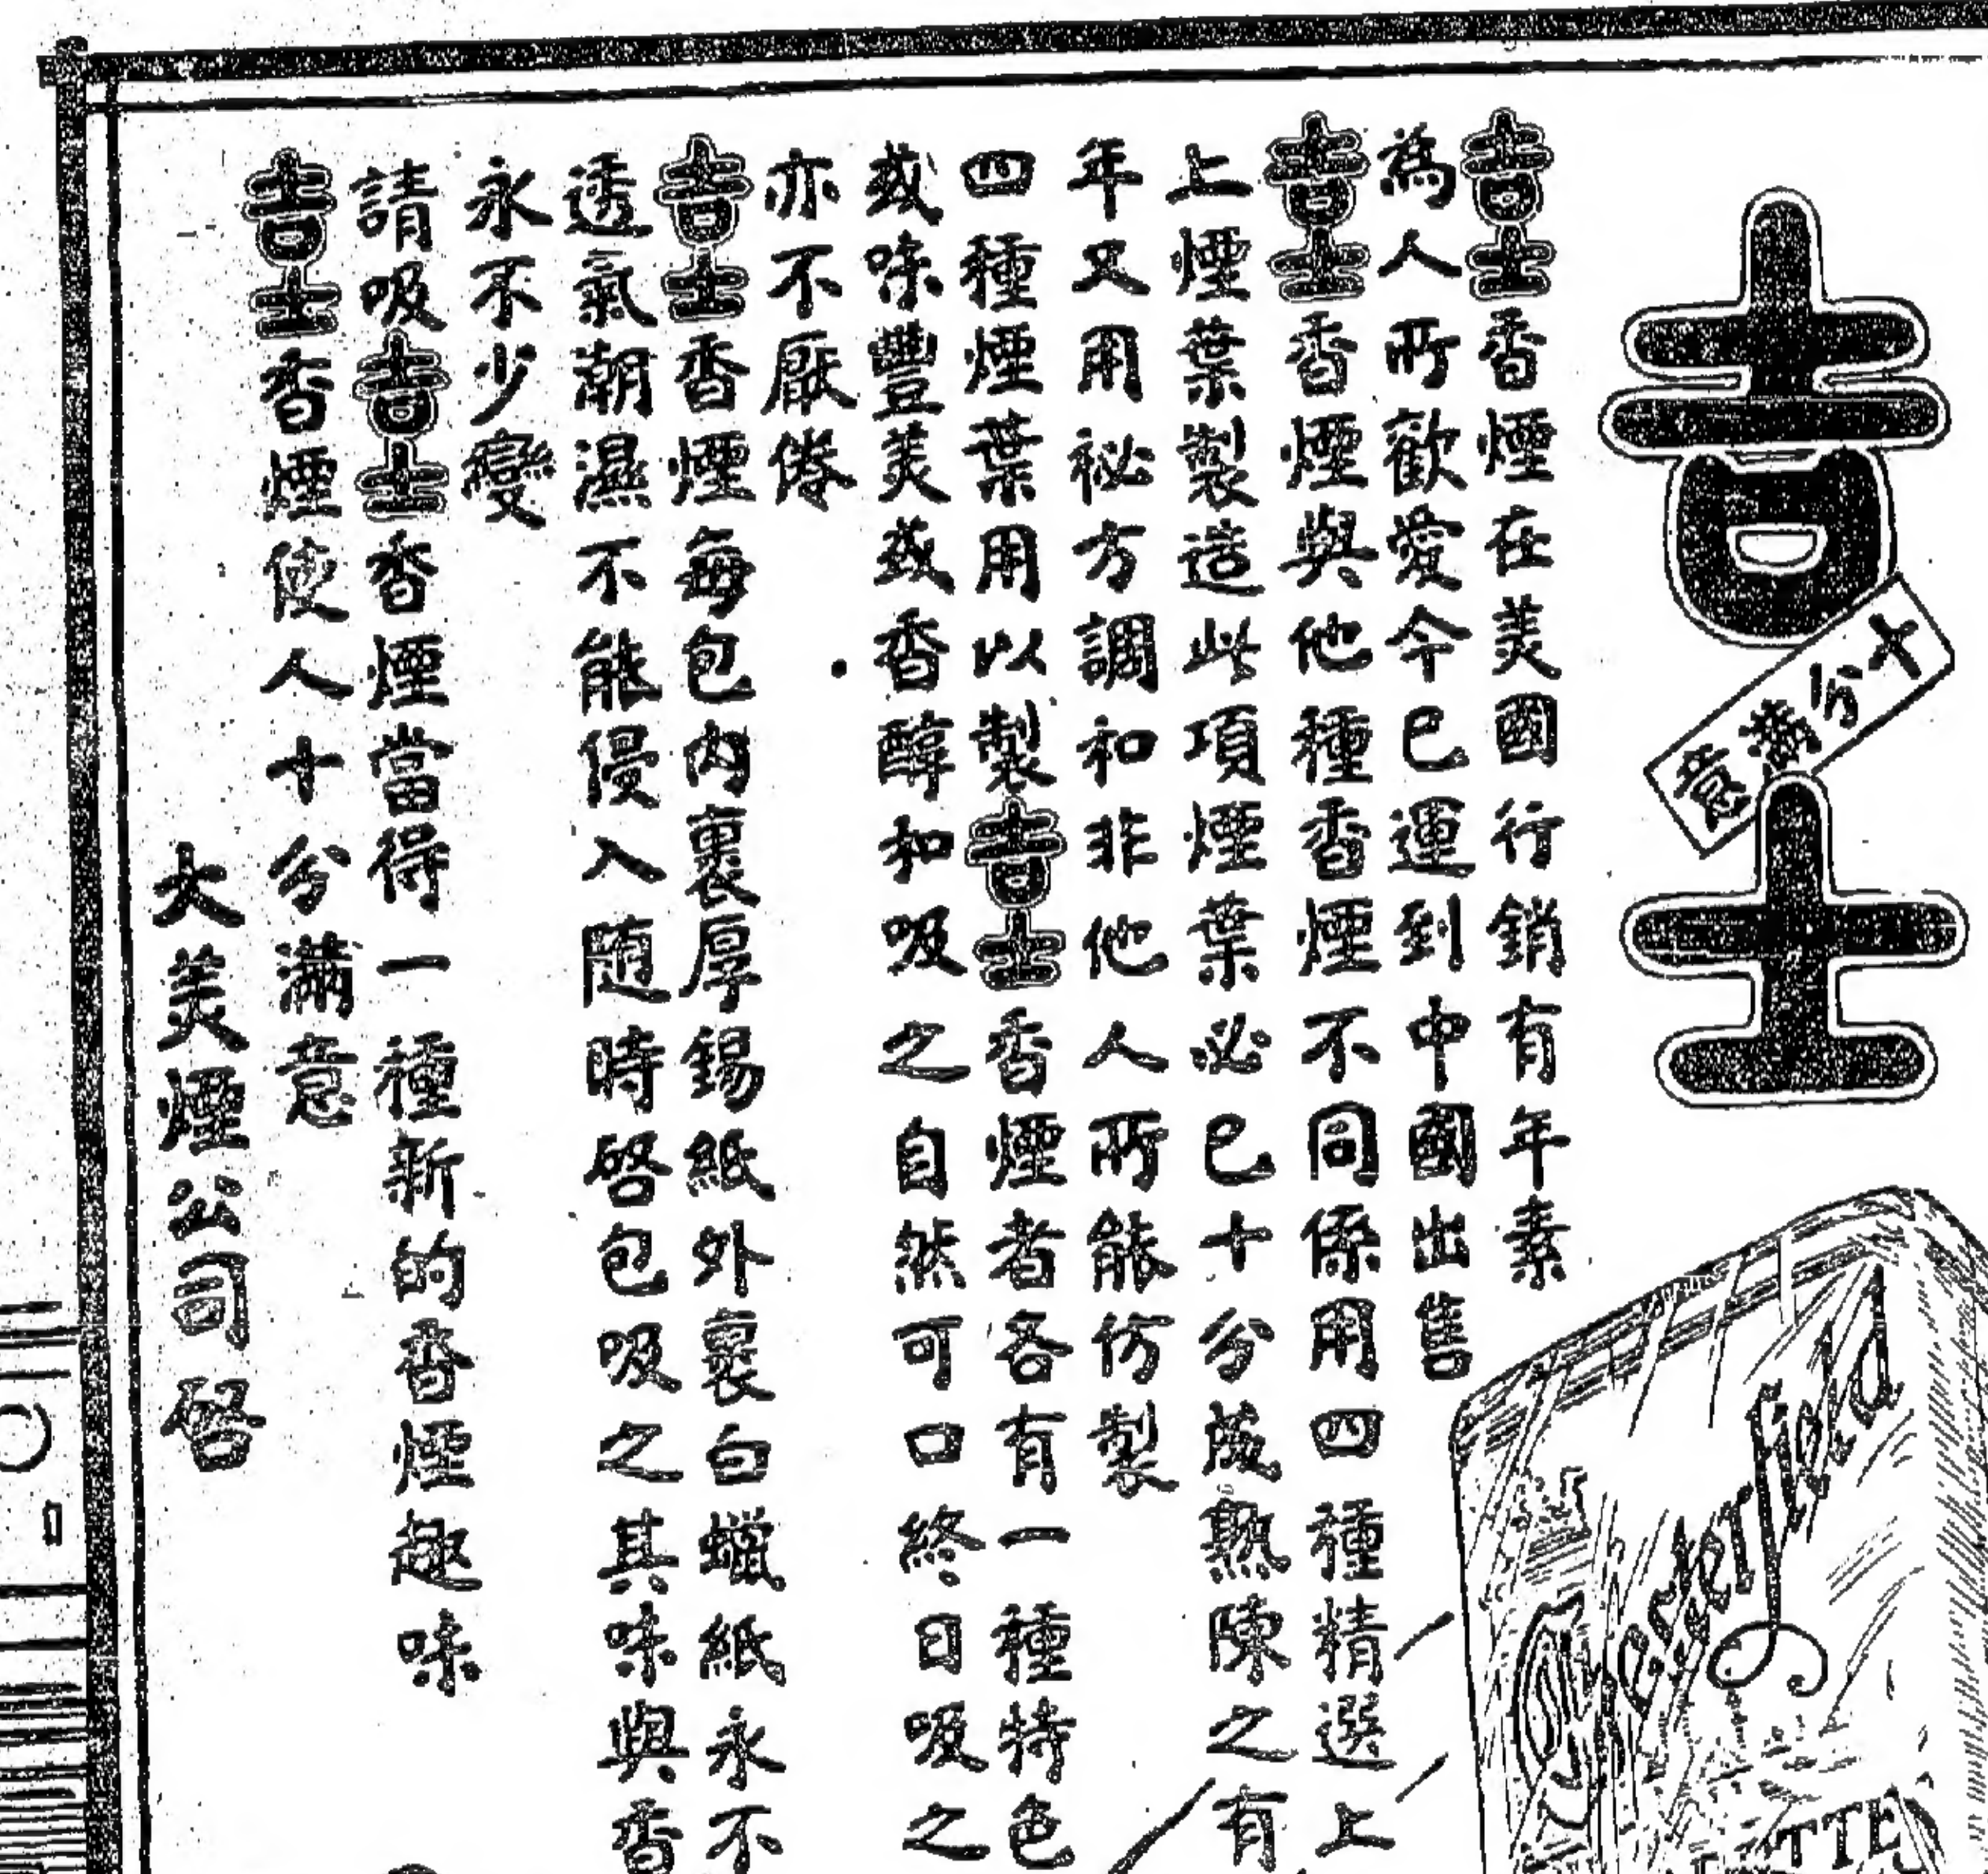 吉士
十分滿意
吉士香煙在美國行銷有年素
為人所歡愛今已運到中國出售
吉士香煙與他種香煙不同係用四種精選上
上煙葉製造此項煙葉必已十分成熟陳之有
年又用祕方調和非他人所能仿製
四種煙葉用以製吉士香煙者各有一種特色
或味豐美或香醇和吸之自然可口終日吸之
亦不厭倦
吉士香煙每包內裏厚錫紙外裏白蠟紙永不
透氣潮濕不能侵入隨時啓包吸之其味與香
永不少變
請吸吉士香煙當得一種新的香煙趣味
吉士香煙使人十分滿意
大美煙公司啓
Chesterfield